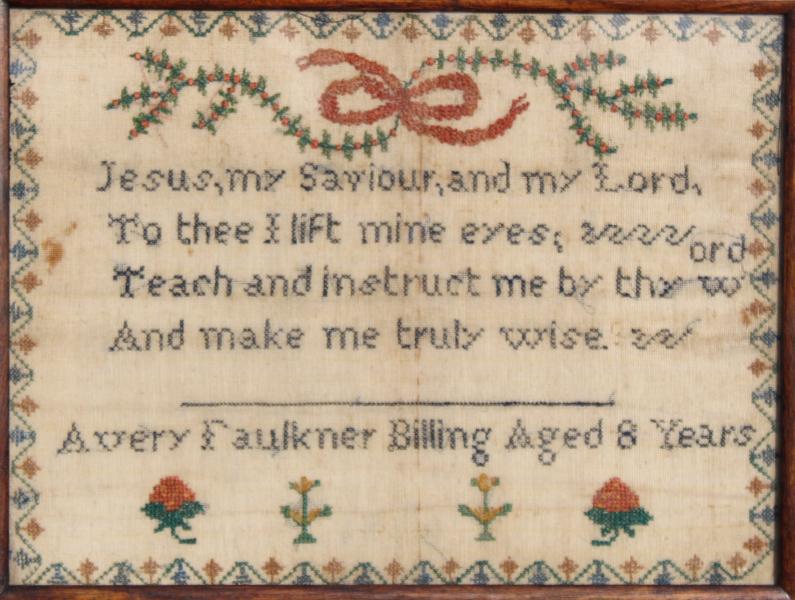 Jesus, my Saviour, and my Lord,
To thee I lift mine eyes;
Teach and instruct me by thy word
And make me truly wise.
Avery Faulkner Billing Aged 8 Years